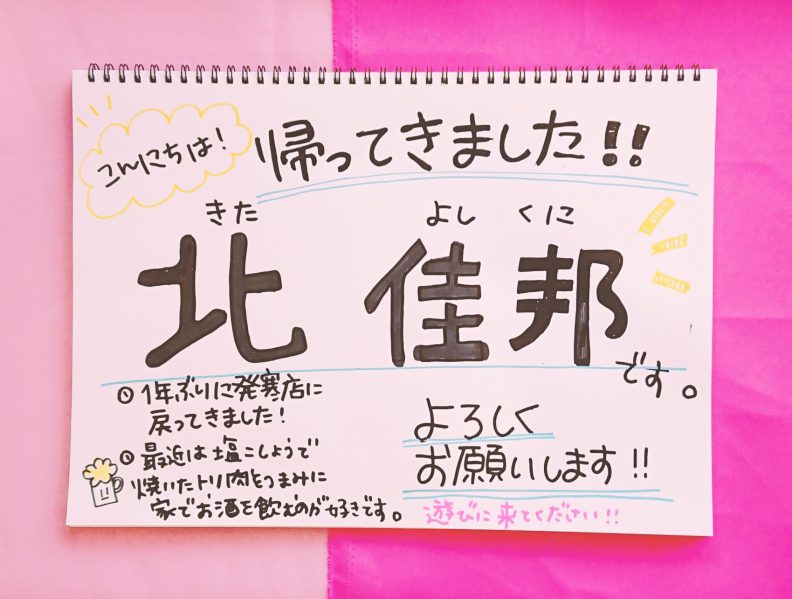 こんにちは!
帰ってきました!!
きた よし くに
北 佳邦
です。
○ 1年ぶりに発寒店に
戻ってきました!
○ 最近は塩こしょうで
焼いたトリ肉をつまみに
家でお酒を飲むのが好きです。
よろしく
お願いします!!
遊びに来てください!!